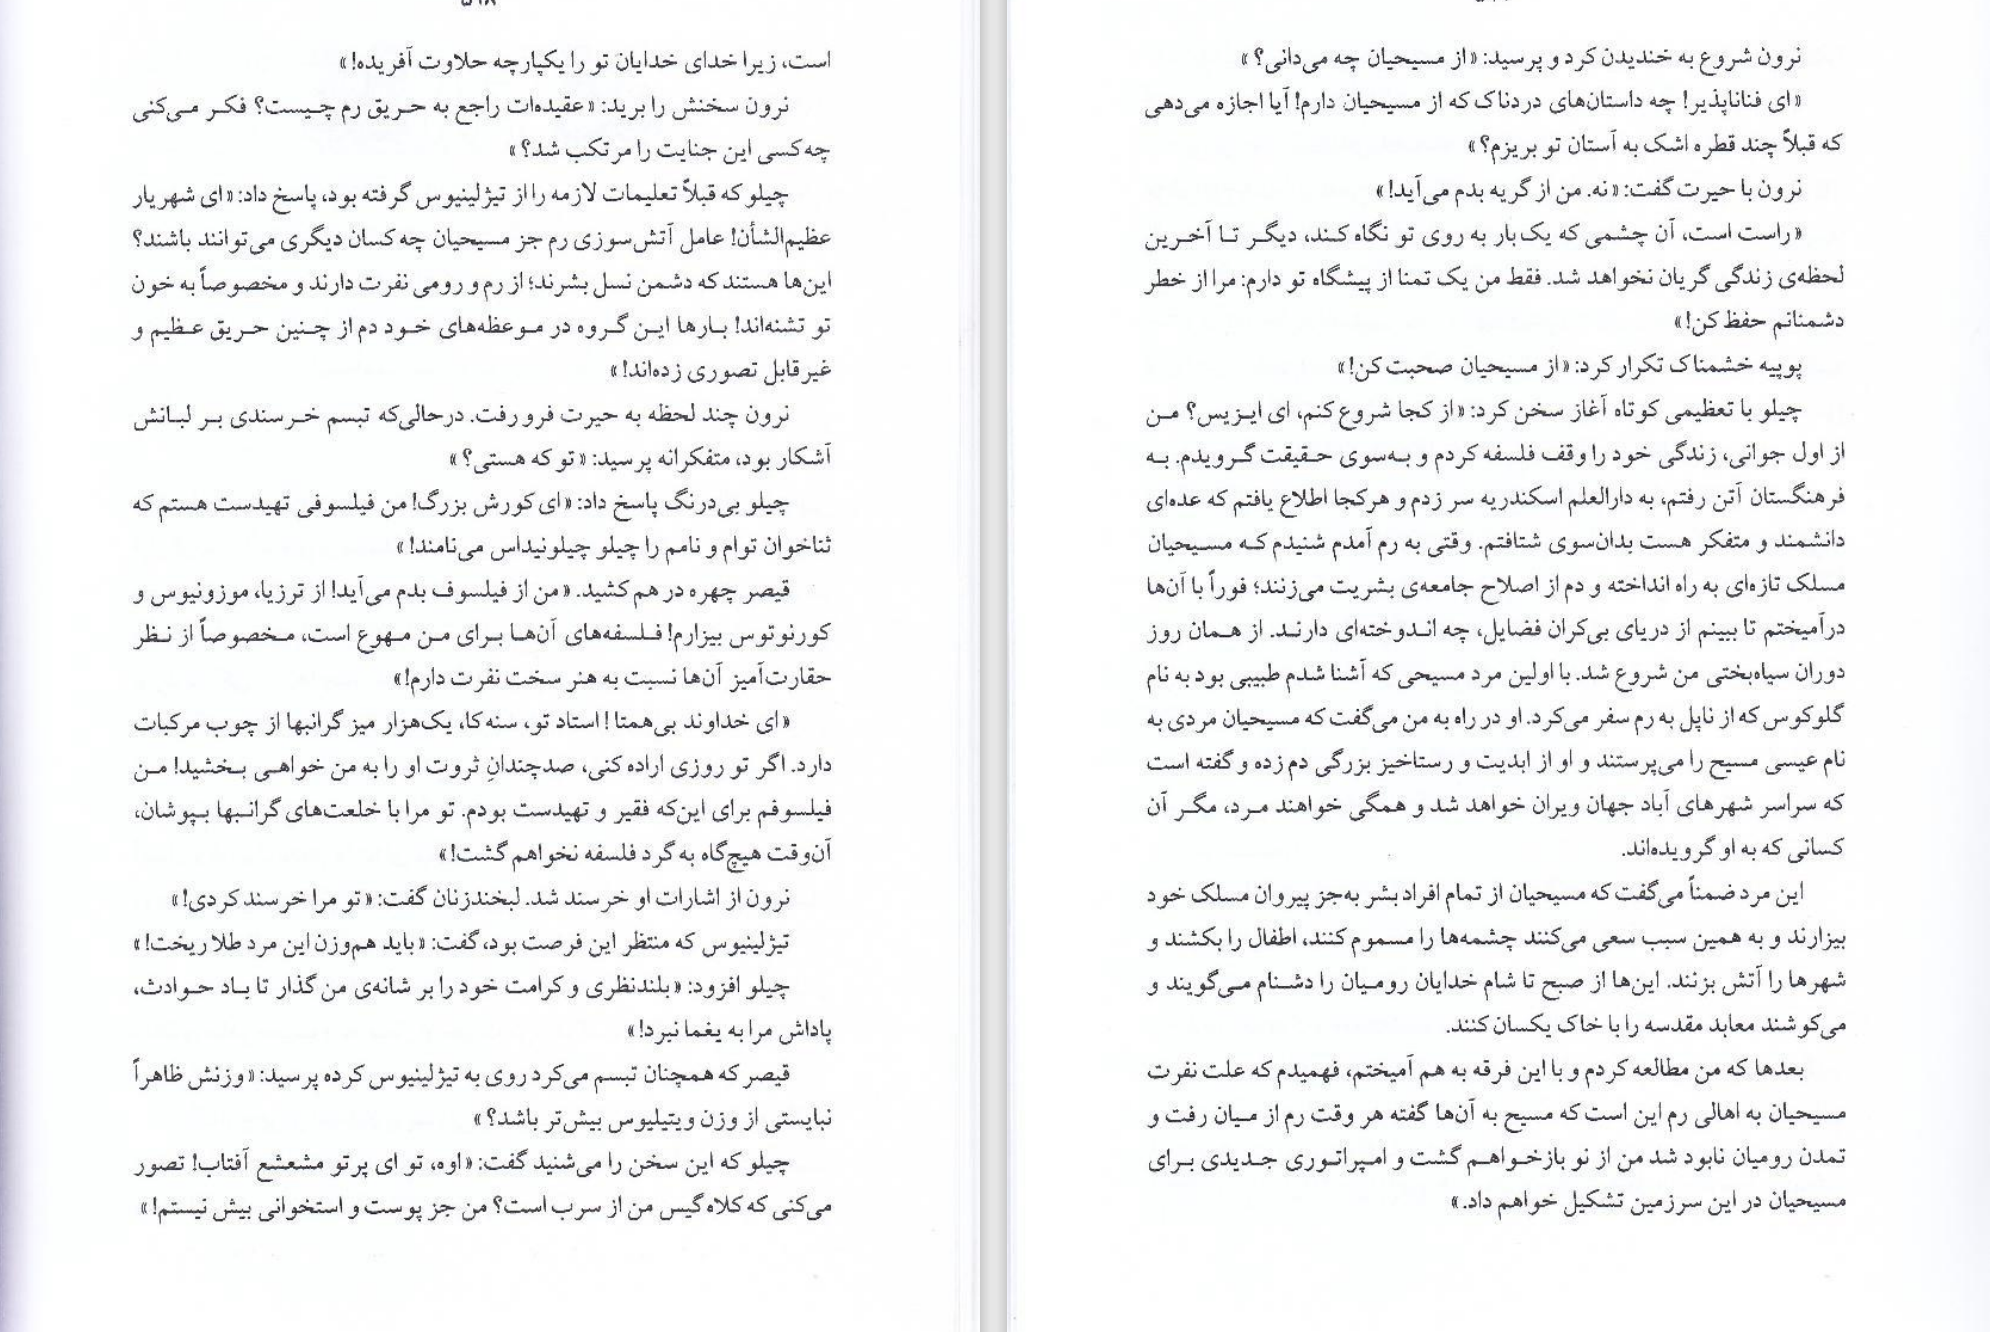 است، زیرا خدای خدایان تو را یکپارچه حلاوت آفریده!»
نرون سخنش را برید: «عقیده‌ات راجع به حریق رم چیست؟ فکر می‌کنی
چه‌کسی این جنایت را مرتکب شد؟»
چیلو که قبلاً تعلیمات لازمه را از تیژلینیوس گرفته بود، پاسخ داد: «ای شهریار
عظیم‌الشأن! عامل آتش‌سوزی رم جز مسیحیان چه کسان دیگری می‌توانند باشند؟
این‌ها هستند که دشمن نسل بشرند؛ از رم و رومی نفرت دارند و مخصوصاً به خون
تو تشنه‌اند! بارها این گروه در موعظه‌های خود دم از چنین حریق عظیم و
غیرقابل تصوری زده‌اند!»
نرون چند لحظه به حیرت فرو رفت. درحالی‌که تبسم خرسندی بر لبانش
آشکار بود، متفکرانه پرسید: «تو که هستی؟»
چیلو بی‌درنگ پاسخ داد: «ای کورش بزرگ! من فیلسوفی تهیدست هستم که
ثناخوان توام و نامم را چیلو چیلونیداس می‌نامند!»
قیصر چهره در هم کشید. «من از فیلسوف بدم می‌آید! از ترزیا، موزونیوس و
کورنوتوس بیزارم! فلسفه‌های آن‌ها برای من مهوع است، مخصوصاً از نظر
حقارت‌آمیز آن‌ها نسبت به هنر سخت نفرت دارم!»
«ای خداوند بی‌همتا! استاد تو، سنه‌کا، یک‌هزار میز گرانبها از چوب مرکبات
دارد. اگر تو روزی اراده کنی، صدچندانِ ثروت او را به من خواهی بخشید! من
فیلسوفم برای این‌که فقیر و تهیدست بودم. تو مرا با خلعت‌های گرانبها بپوشان،
آن‌وقت هیچ‌گاه به گرد فلسفه نخواهم گشت!»
نرون از اشارات او خرسند شد. لبخندزنان گفت: «تو مرا خرسند کردی!»
تیژلینیوس که منتظر این فرصت بود، گفت: «باید هم‌وزن این مرد طلا ریخت!»
چیلو افزود: «بلندنظری و کرامت خود را بر شانه‌ی من گذار تا باد حوادث،
پاداش مرا به یغما نبرد!»
قیصر که همچنان تبسم می‌کرد روی به تیژلینیوس کرده پرسید: «وزنش ظاهراً
نبایستی از وزن ویتیلیوس بیش‌تر باشد؟»
چیلو که این سخن را می‌شنید گفت: «اوه، تو ای پرتو مشعشع آفتاب! تصور
می‌کنی که کلاه گیس من از سرب است؟ من جز پوست و استخوانی بیش نیستم!»
نرون شروع به خندیدن کرد و پرسید: «از مسیحیان چه می‌دانی؟»
«ای فناناپذیر! چه داستان‌های دردناک که از مسیحیان دارم! آیا اجازه می‌دهی
که قبلاً چند قطره اشک به آستان تو بریزم؟»
نرون با حیرت گفت: «نه. من از گریه بدم می‌آید!»
«راست است، آن چشمی که یک بار به روی تو نگاه کند، دیگر تا آخرین
لحظه‌ی زندگی گریان نخواهد شد. فقط من یک تمنا از پیشگاه تو دارم: مرا از خطر
دشمنانم حفظ کن!»
پوپیه خشمناک تکرار کرد: «از مسیحیان صحبت کن!»
چیلو با تعظیمی کوتاه آغاز سخن کرد: «از کجا شروع کنم، ای ایزیس؟ من
از اول جوانی، زندگی خود را وقف فلسفه کردم و به‌سوی حقیقت گرویدم. به
فرهنگستان آتن رفتم، به دارالعلم اسکندریه سر زدم و هرکجا اطلاع یافتم که عده‌ای
دانشمند و متفکر هست بدان‌سوی شتافتم. وقتی به رم آمدم شنیدم که مسیحیان
مسلک تازه‌ای به راه انداخته و دم از اصلاح جامعه‌ی بشریت می‌زنند؛ فوراً با آن‌ها
درآمیختم تا ببینم از دریای بی‌کران فضایل، چه اندوخته‌ای دارند. از همان روز
دوران سیاه‌بختی من شروع شد. با اولین مرد مسیحی که آشنا شدم طبیبی بود به نام
گلوکوس که از ناپل به رم سفر می‌کرد. او در راه به من می‌گفت که مسیحیان مردی به
نام عیسی مسیح را می‌پرستند و او از ابدیت و رستاخیز بزرگی دم زده و گفته است
که سراسر شهرهای آباد جهان ویران خواهد شد و همگی خواهند مرد، مگر آن
کسانی که به او گرویده‌اند.
این مرد ضمناً می‌گفت که مسیحیان از تمام افراد بشر به‌جز پیروان مسلک خود
بیزارند و به همین سبب سعی می‌کنند چشمه‌ها را مسموم کنند، اطفال را بکشند و
شهرها را آتش بزنند. این‌ها از صبح تا شام خدایان رومیان را دشنام می‌گویند و
می‌کوشند معابد مقدسه را با خاک یکسان کنند.
بعدها که من مطالعه کردم و با این فرقه به هم آمیختم، فهمیدم که علت نفرت
مسیحیان به اهالی رم این است که مسیح به آن‌ها گفته هر وقت رم از میان رفت و
تمدن رومیان نابود شد من از نو بازخواهم گشت و امپراتوری جدیدی برای
مسیحیان در این سرزمین تشکیل خواهم داد.»